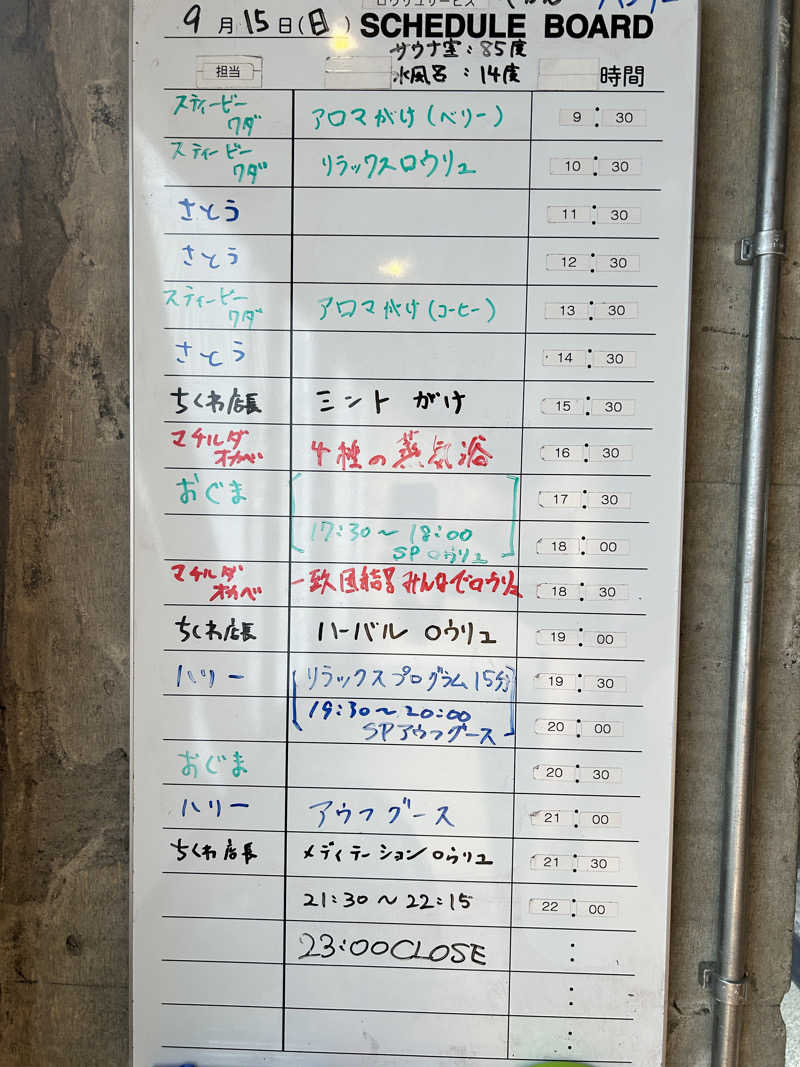 ロウリュサービス
9月15日(日) SCHEDULE BOARD
サウナ室：85度
担当 水風呂：14度 時間
スティービーワダ アロマがけ(ベリー) 9：30
スティービーワダ リラックスロウリュ 10：30
さとう 11：30
さとう 12：30
スティービーワダ アロマがけ(コーヒー) 13：30
さとう 14：30
ちくわ店長 ミントがけ 15：30
マチルダオカベ 4種の蒸気浴 16：30
おぐま 17：30
17：30〜18：00 SPロウリュ 18：00
マチルダオカベ 一致団結みんなでロウリュ 18：30
ちくわ店長 ハーバルロウリュ 19：00
ハリー リラックスプログラム15分 19：30
19：30〜20：00 SPアウフグース 20：00
おぐま 20：30
ハリー アウフグース 21：00
ちくわ店長 メディテーションロウリュ 21：30
21：30〜22：15 22：00
23：00CLOSE